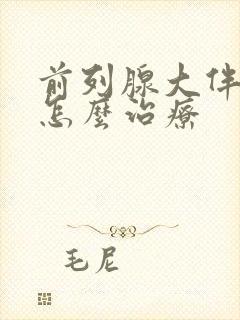 前列腺大伴
怎麽治療
毛尼